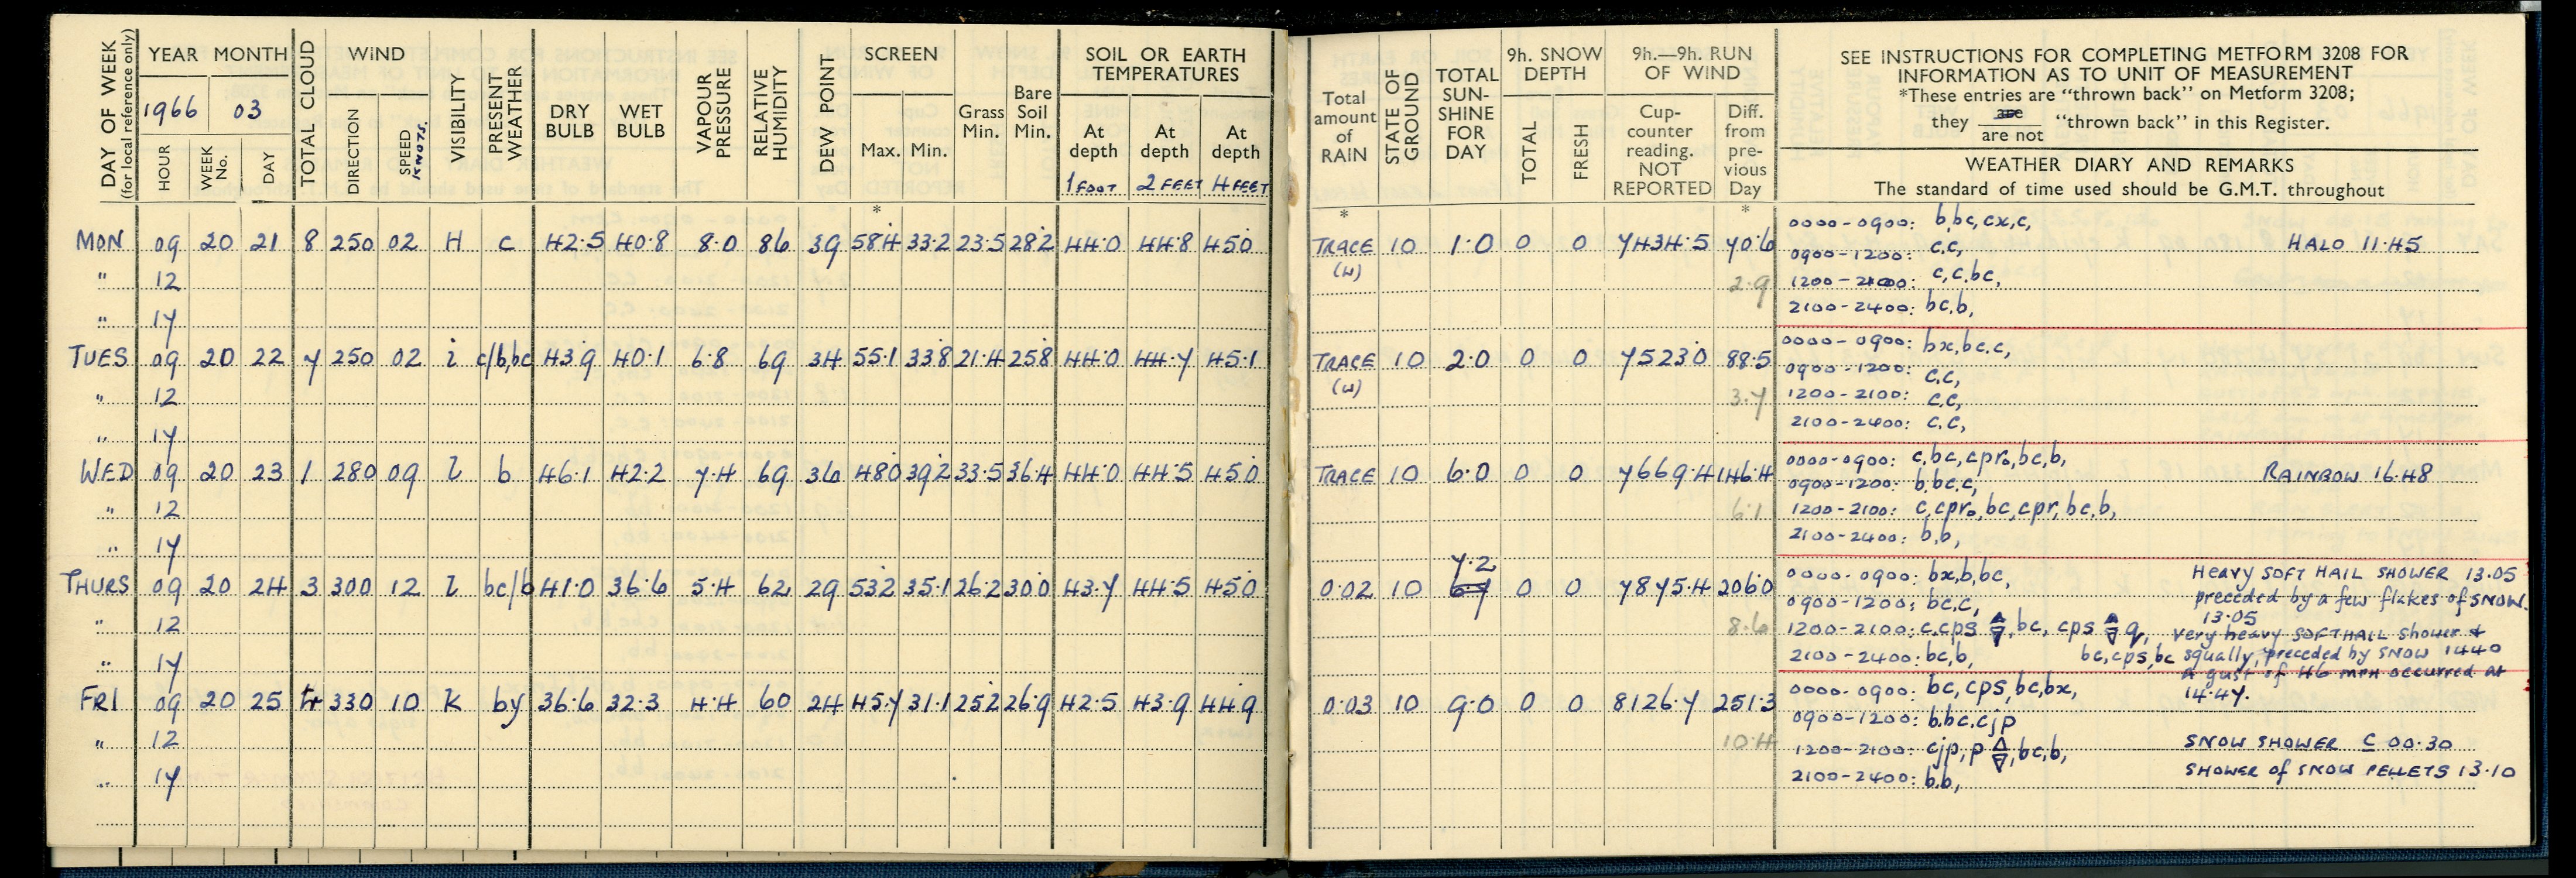 DAY OF WEEK (for local reference only) YEAR MONTH TOTAL CLOUD WIND VISIBILITY PRESENT WEATHER DRY BULB WET BULB VAPOUR PRESSURE RELATIVE HUMIDITY DEW POINT SCREEN Grass Min. Bare Soil Min. SOIL OR EARTH TEMPERATURES
1966 03
HOUR WEEK No. DAY DIRECTION SPEED KNOTS. Max. Min. At depth At depth At depth
1 FOOT 2 FEET 4 FEET
*
MON 09 20 21 8 250 02 H c 42.5 40.8 8.0 86 39 58.4 33.2 23.5 28.2 44.0 44.8 45.0
" 12
" 17
TUES 09 20 22 7 250 02 i c/b,bc 43.9 40.1 6.8 69 34 55.1 33.8 21.4 25.8 44.0 44.7 45.1
" 12
" 17
WED 09 20 23 1 280 09 l b 46.1 42.2 7.4 69 36 48.0 39.2 33.5 36.4 44.0 44.5 45.0
" 12
" 17
THURS 09 20 24 3 300 12 l bc/b 41.0 36.6 5.4 62 29 53.2 35.1 26.2 30.0 43.7 44.5 45.0
" 12
" 17
FRI 09 20 25 tr 330 10 K by 36.6 32.3 4.4 60 24 45.7 31.1 25.2 26.9 42.5 43.9 44.9
" 12
" 17
Total amount of RAIN STATE OF GROUND TOTAL SUN-SHINE FOR DAY 9h. SNOW DEPTH TOTAL FRESH 9h.—9h. RUN OF WIND Cup-counter reading. NOT REPORTED Diff. from pre-vious Day
SEE INSTRUCTIONS FOR COMPLETING METFORM 3208 FOR
INFORMATION AS TO UNIT OF MEASUREMENT
*These entries are "thrown back" on Metform 3208;
they are / are not "thrown back" in this Register.
WEATHER DIARY AND REMARKS
The standard of time used should be G.M.T. throughout
* *
TRACE 10 1.0 0 0 7434.5 70.6
(W)
2.9
0000-0900: b,bc,cx,c,
HALO 11.45
0900-1200: c.c,
1200-2100: c,c.bc,
2100-2400: bc.b,
TRACE 10 2.0 0 0 7523.0 88.5
(W)
3.7
0000-0900: bx,bc.c,
0900-1200: c.c,
1200-2100: c.c,
2100-2400: c.c,
TRACE 10 6.0 0 0 7669.4 146.4
6.1
0000-0900: c,bc,cpro,bc,b,
RAINBOW 16.48
0900-1200: b.bc.c,
1200-2100: c,cpro,bc,cpr,bc,b,
2100-2400: b,b,
7.2
0.02 10 6.7 0 0 7875.4 206.0
8.6
0000-0900: bx,b,bc,
0900-1200: bc.c,
1200-2100: c.cps, bc, cps q,
bc,cps,bc
2100-2400: bc,b,
Heavy SOFT HAIL SHOWER 13.05
preceded by a few flakes of SNOW.
13.05
Very heavy SOFT HAIL Shower &
squally, preceded by SNOW 1440
A gust of 46 MPH occurred at
14.47.
0.03 10 9.0 0 0 8126.7 251.3
10.4
0000-0900: bc,cps,bc,bx,
0900-1200: b.bc.cjp
1200-2100: cjp,p,bc,b,
2100-2400: b.b,
SNOW SHOWER C 00.30
SHOWER of SNOW PELLETS 13.10